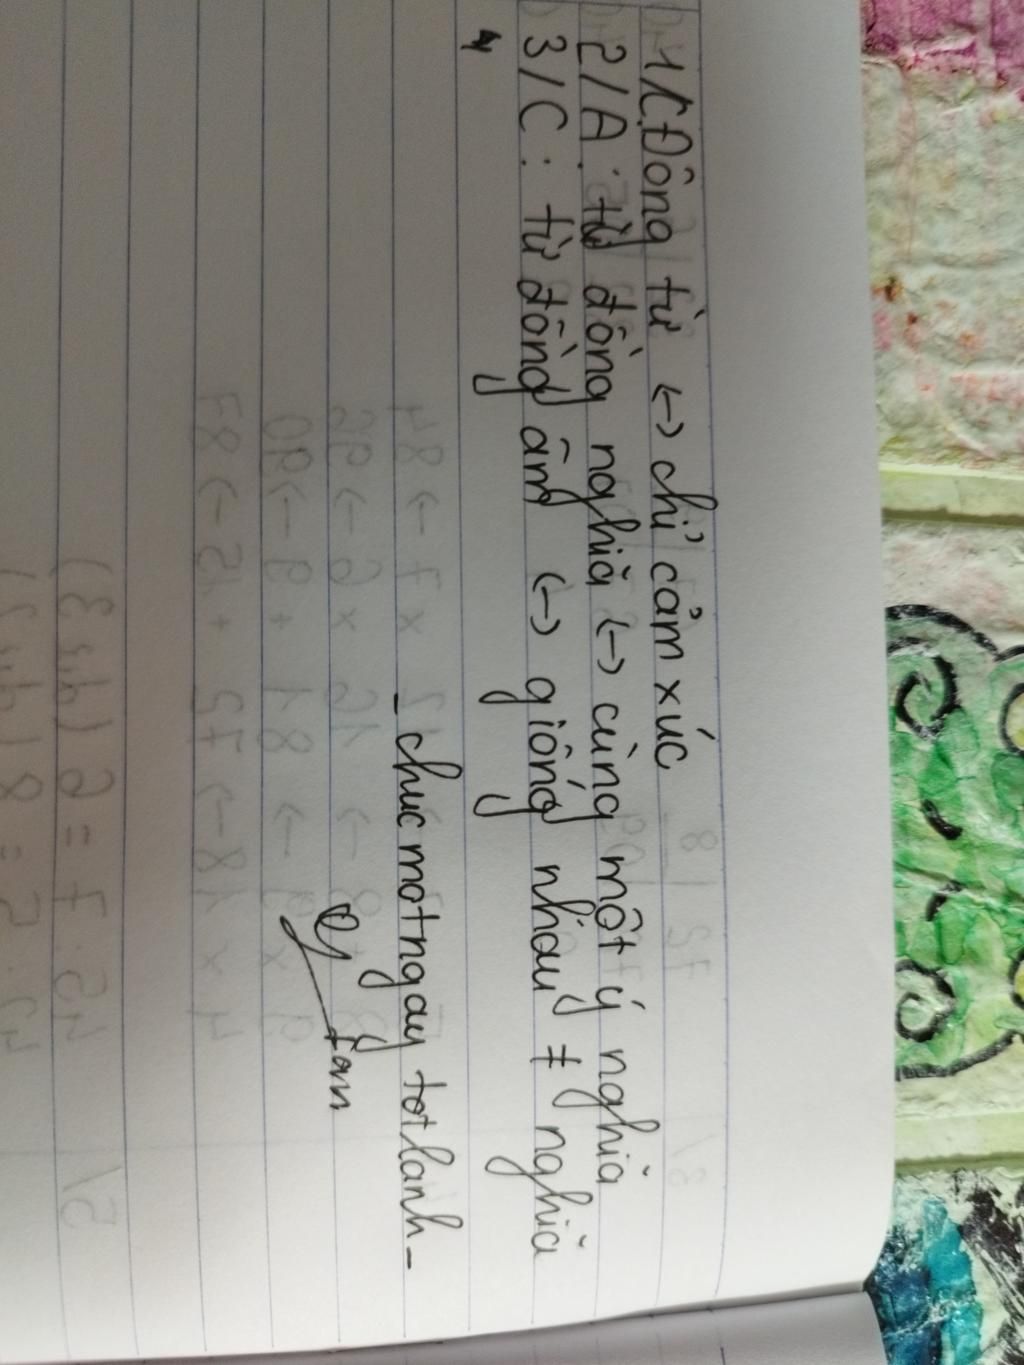 1/C Động từ <-> chỉ cảm xúc
2/A: từ đồng nghĩa <-> cùng một ý nghĩa
3/C: từ đồng âm <-> giống nhau ≠ nghĩa
_chuc mot ngay tot lanh_